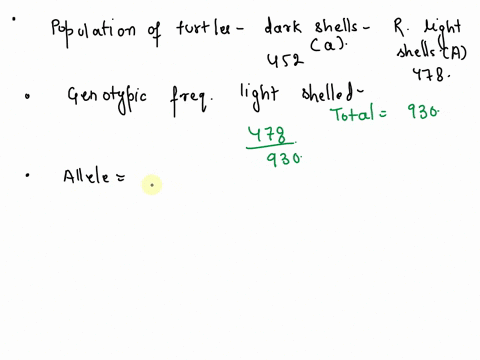 • Population of turtles - dark shells - R. light
(a). shells (A)
452 478.
• Genotypic freq. light shelled -
Total = 930
478
930.
• Allele =